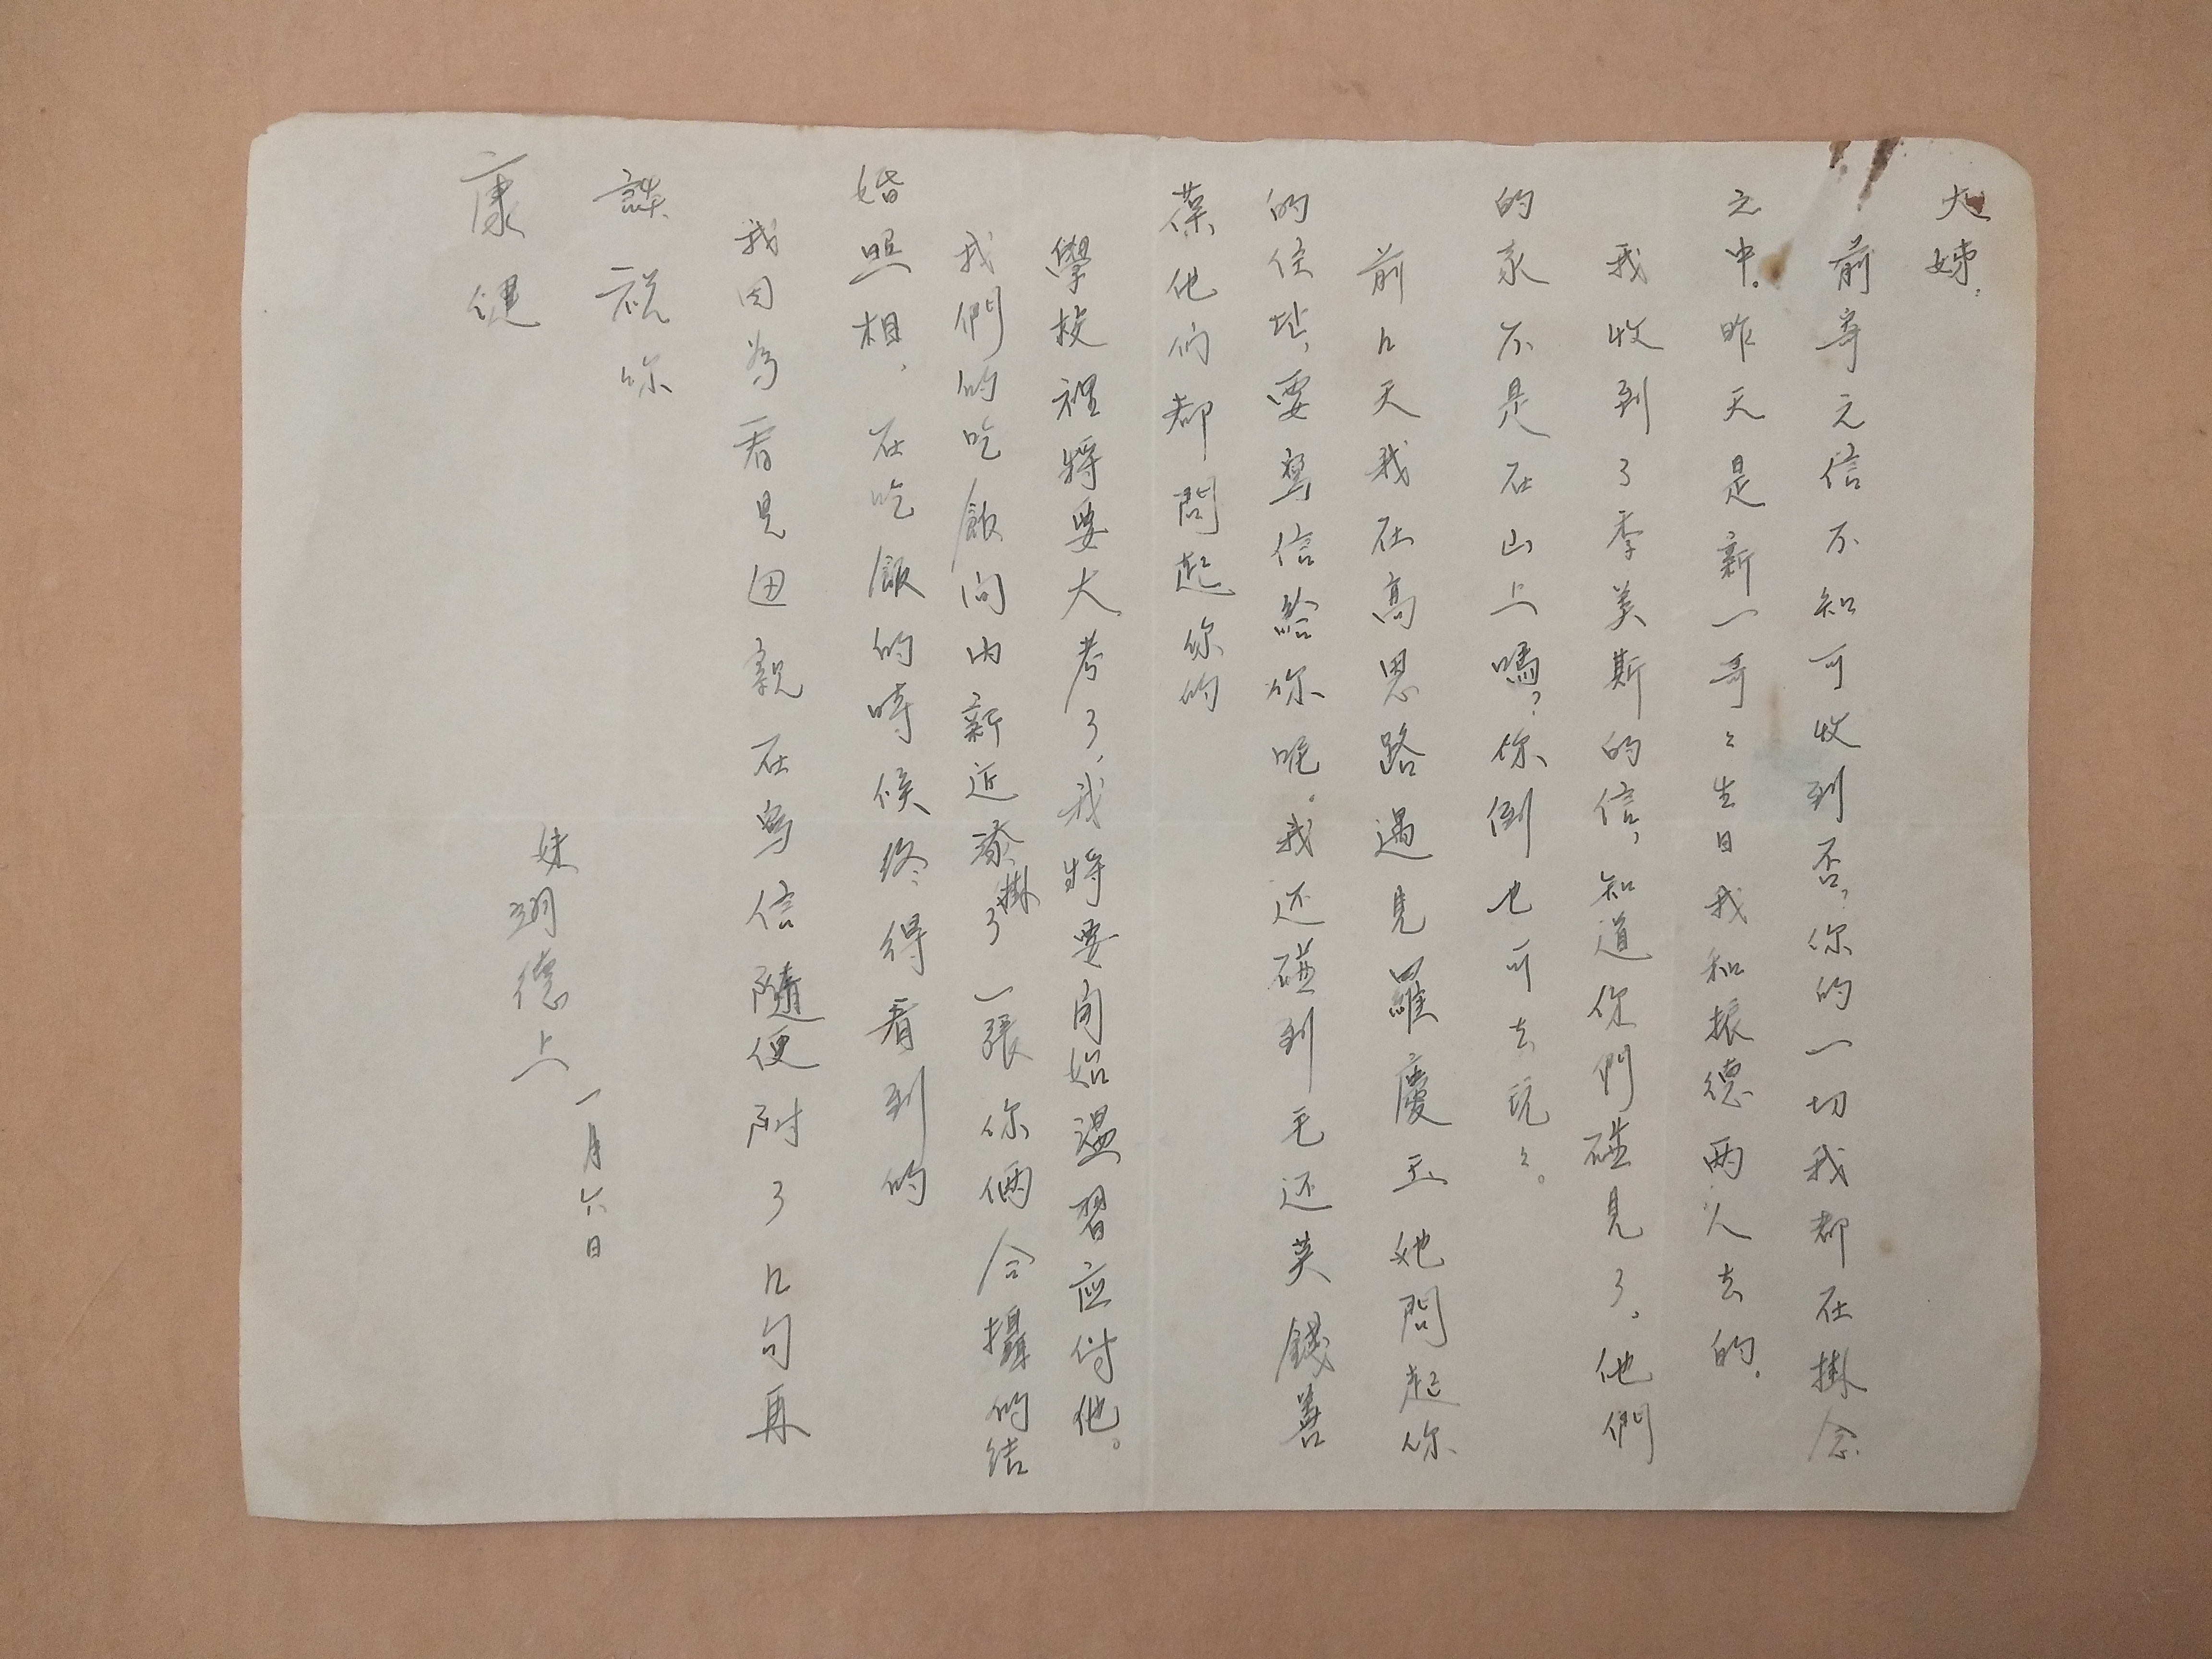 大姊：
前寄之信不知可收到否？你的一切我都在掛念
之中。昨天是新一哥〻生日我和振德两人去的。
我收到了季美斯的信，知道你們碰見了。他們
的家不是在山上嗎？你倒也可去玩〻。
前几天我在高恩路遇見羅慶玉她問起你
的住址，要寫信給你呢。我还碰到毛还英錢善
葆他们都問起你的
學校裡將要大考了，我將要開始溫習应付他。
我們的吃飯间内新近添掛了一張你倆合攝的结
婚照相，在吃飯的時候终得看到的
我因為看見母親在寫信隨便附了几句再
談祝你
康健
妹翊德上
一月六日